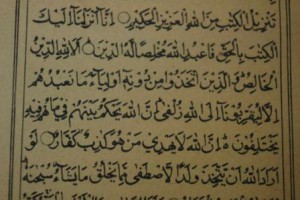 تنزيل الكتب من الله العزيز الحكيم ۝ انا انزلنا اليك
الكتب بالحق فاعبد الله مخلصا له الدين ۝ الا لله الدين
الخالص والذين اتخذوا من دونه اولياء ما نعبدهم
الا ليقربونا الى الله زلفى ان الله يحكم بينهم في ما هم فيه
يختلفون ۝ ان الله لا يهدي من هو كذب كفار ۝ لو
اراد الله ان يتخذ ولدا لاصطفى مما يخلق ما يشاء سبحنه